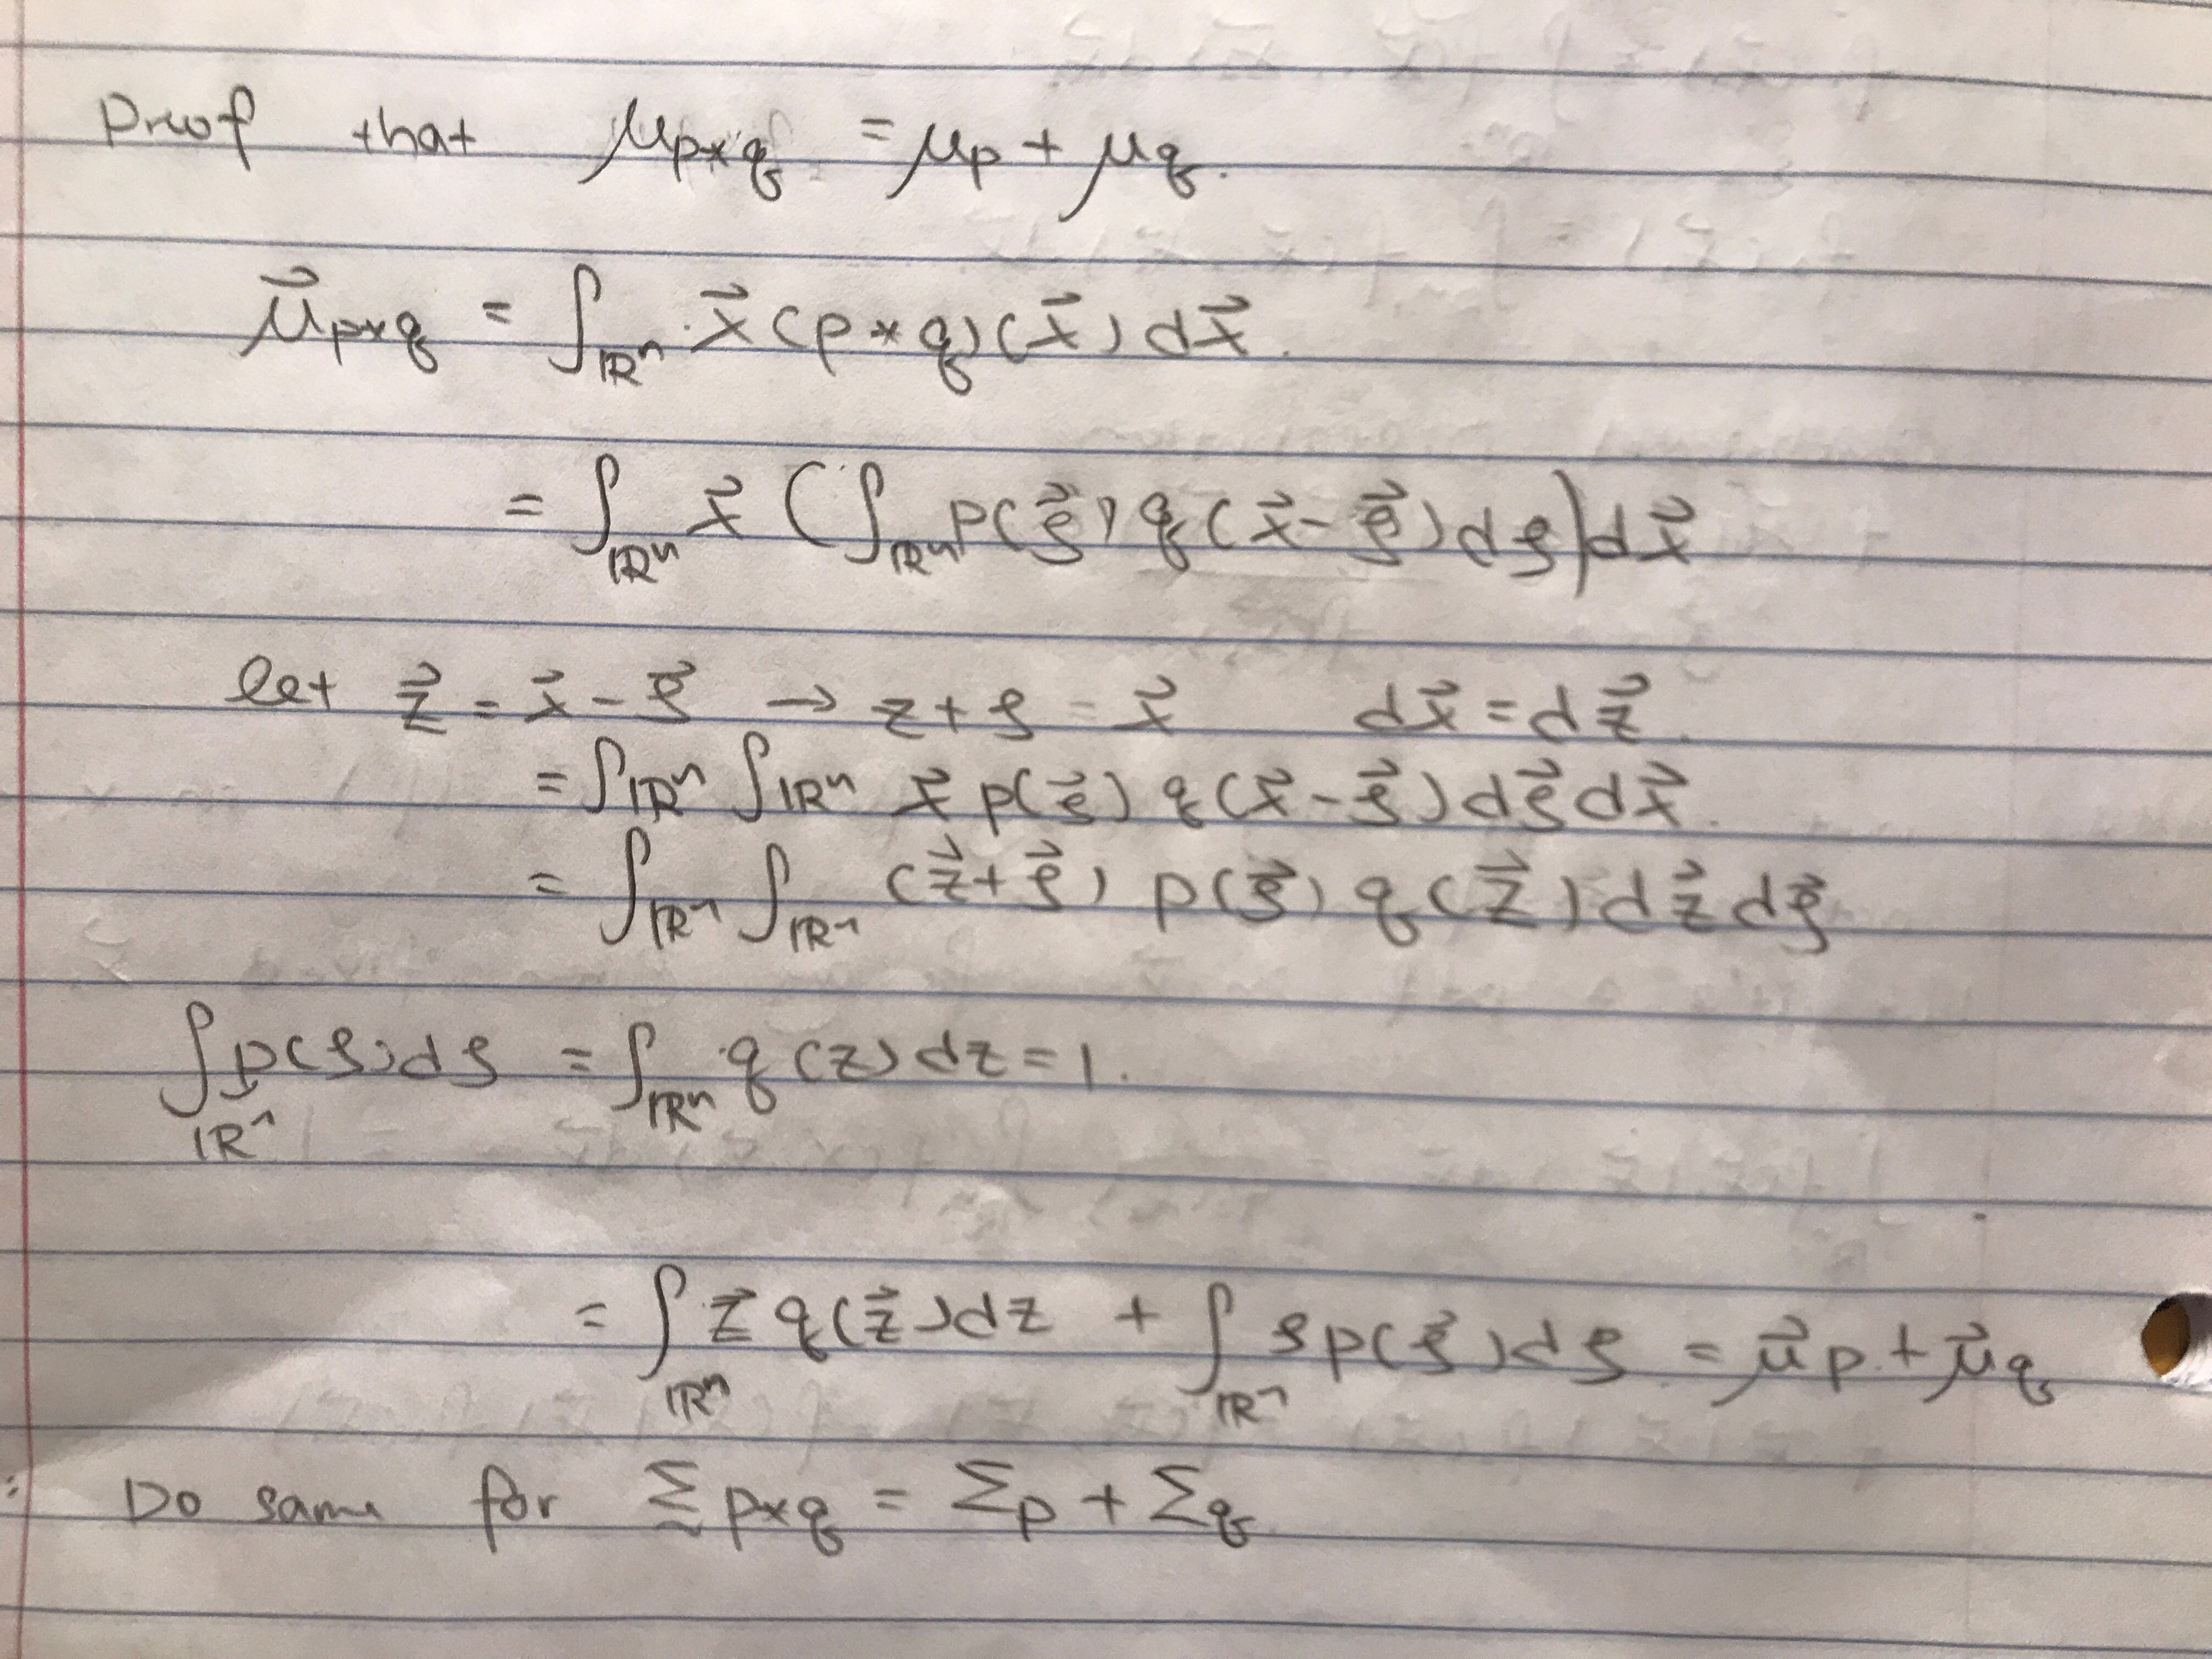 Proof that μ_{p*q} = μ_p + μ_q.
\vec{μ}_{p*q} = ∫_{ℝⁿ} \vec{x} (p * q)(\vec{x}) d\vec{x}.
= ∫_{ℝⁿ} \vec{x} (∫_{ℝⁿ} p(\vec{ξ}) q(\vec{x} - \vec{ξ}) dξ) d\vec{x}
let \vec{z} = \vec{x} - \vec{ξ} → z + ξ = \vec{x} d\vec{x} = d\vec{z}.
= ∫_{ℝⁿ} ∫_{ℝⁿ} \vec{x} p(\vec{ξ}) q(\vec{x} - \vec{ξ}) d\vec{ξ} d\vec{x}.
= ∫_{ℝⁿ} ∫_{ℝⁿ} (\vec{z} + \vec{ξ}) p(\vec{ξ}) q(\vec{z}) d\vec{z} d\vec{ξ}
∫_{ℝⁿ} p(ξ) dξ = ∫_{ℝⁿ} q(z) dz = 1.
= ∫_{ℝⁿ} \vec{z} q(\vec{z}) dz + ∫_{ℝⁿ} ξ p(\vec{ξ}) dξ = \vec{μ}_p + \vec{μ}_q
: Do same for Σ_{p*q} = Σ_p + Σ_q